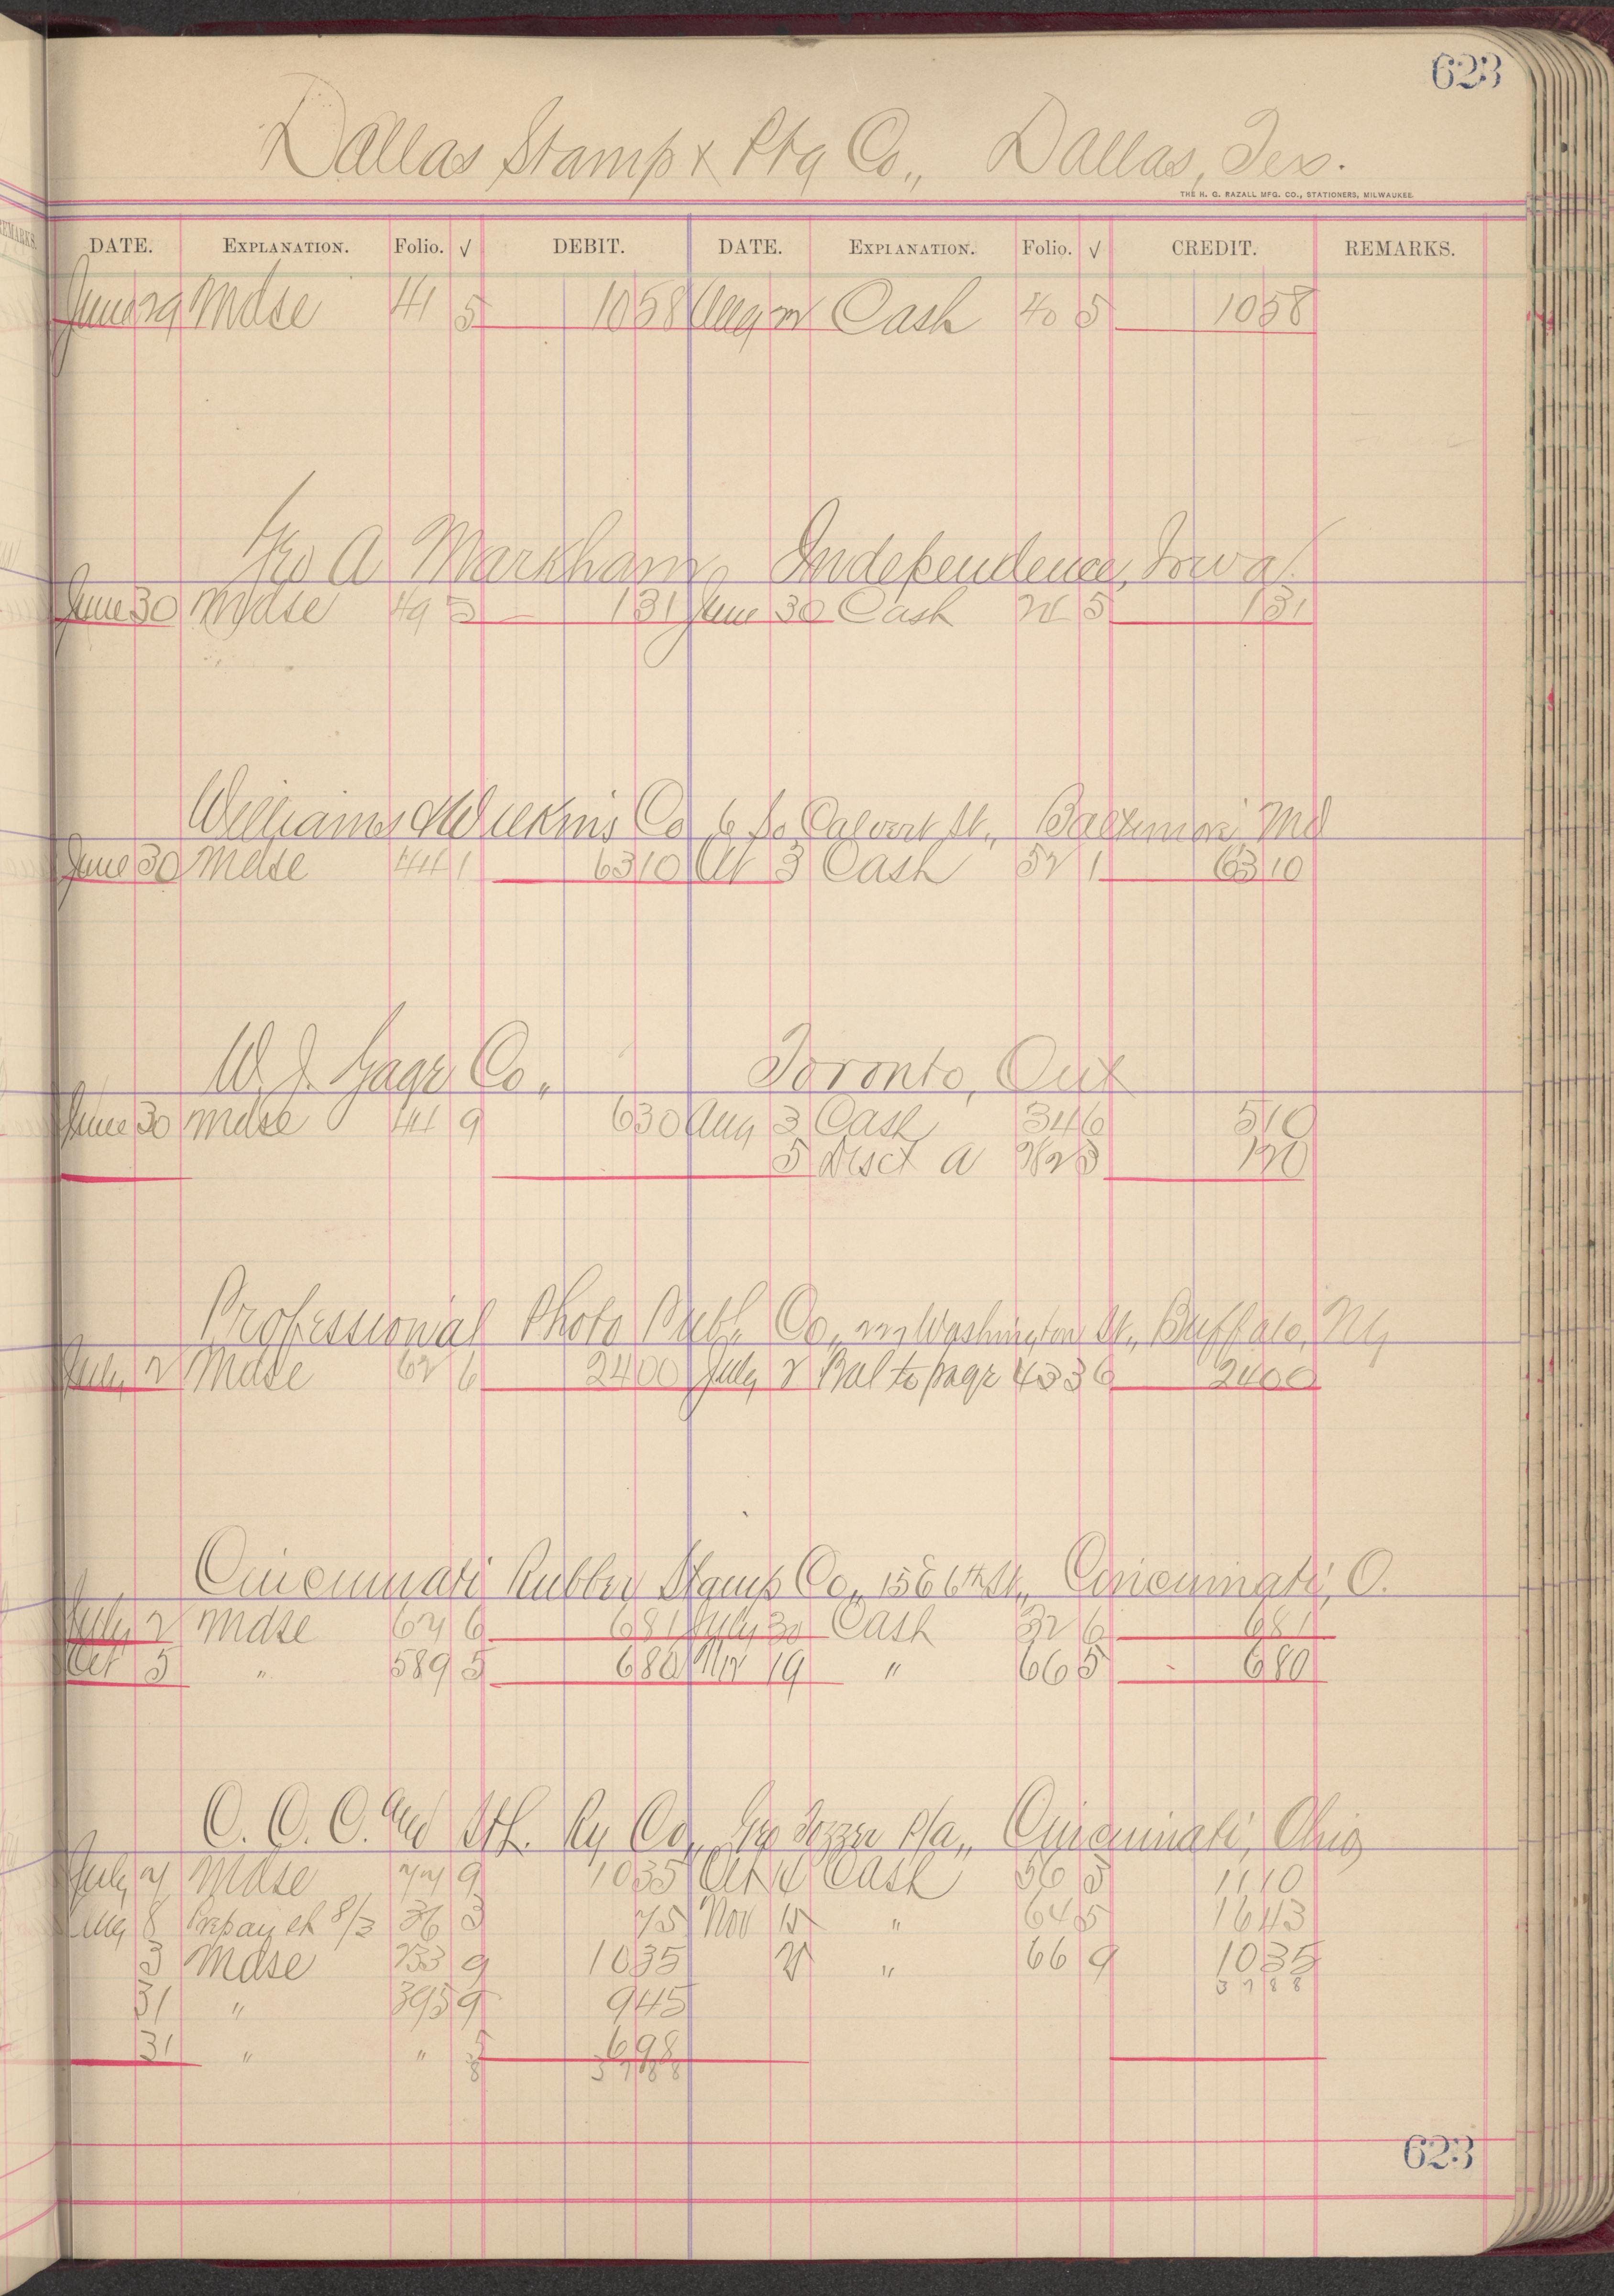 623
Dallas Stamp & Ptg Co., Dallas, Tex.
THE H. G. RAZALL MFG. CO., STATIONERS, MILWAUKEE.
DATE. EXPLANATION. Folio. √ DEBIT. DATE. EXPLANATION. Folio. √ CREDIT. REMARKS.
June 29 Mdse 41 5 1058 Aug Cash 40 5 1058
Geo A Markham Independence, Iowa
June 30 Mdse 49 5 131 June 30 Cash 5 131
Williams & Wilkins Co 6 So Calvert St., Baltimore, Md
June 30 Mdse 44 1 6310 Oct 3 Cash 52 1 6310
W. J. Gage Co., Toronto, Ont
June 30 Mdse 44 9 630 Aug 3 Cash 34 6 510
5 Disct a 3 120
Professional Photo Publ. Co., Washington St., Buffalo, NY
July 2 Mdse 62 6 2400 July 2 Bal to page 433 6 2400
Cincinnati Rubber Stamp Co., 15 E 6th St., Cincinnati, O.
July 2 Mdse 67 6 681 July 30 Cash 32 6 681
Oct 5 " 589 5 680 Nov 19 " 66 5 680
C. C. C. and St L. Ry Co., Geo Tozzer P/a., Cincinnati, Ohio
July 7 Mdse 77 9 1035 Oct 14 Cash 56 5 1110
Aug 8 Prepay ch 8/3 36 3 75 Nov 15 " 64 5 1643
3 Mdse 233 9 1035 " 66 9 1035
3788
31 " 395 9 945
31 " " 5 698
8 3788
623